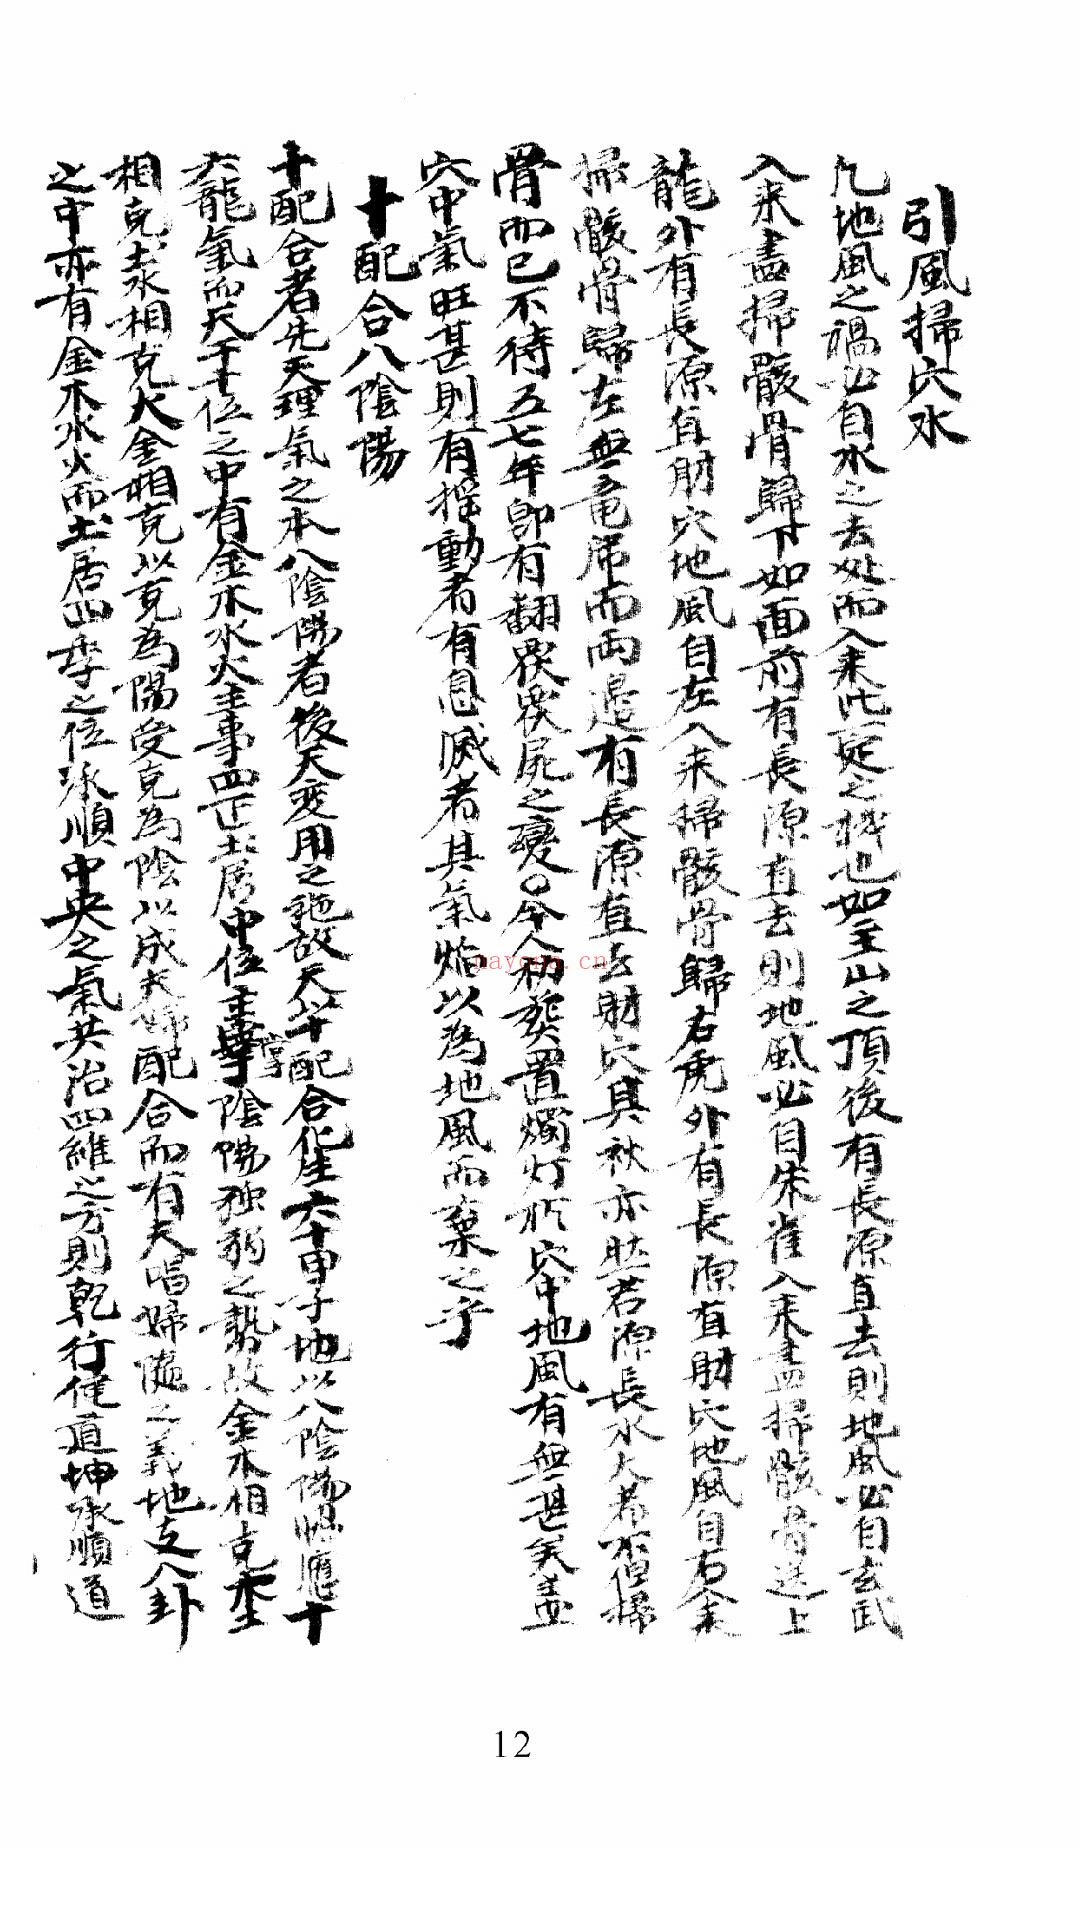 引風掃穴水
凡地風之禍必自水之去処而入来此定之機也如主山之頂後有長源直去則地風必自玄武
入来盡掃骸骨歸下如面前有長源直去則地風必自朱雀入来盡掃骸骨送上
龍外有長源直射穴地風自左入来掃骸骨歸右虎外有長源直射穴地風自右入来
掃骸骨歸左無竜虎而両邊有長源直去射穴其秋亦然若源長水大者不但掃
骨而已不待五七年即有翻屍之變○今人初葬置燭灯於穴中地風有無甚矣盖
穴中氣旺甚則有揺動者有息滅者其氣焰以為地風而棄之乎
十配合八陰陽
十配合者先天理氣之本八陰陽者後天変用之施故天以十配合化生六十甲子地以八陰陽應十
六龍氣而天干十位之中有金木水火主事四正土居中位主掌陰陽独弱之勢故金木相克木土
相克土水相克火金相克以克為陽受克為陰以成夫婦配合而有夫唱婦随之義地支八卦
之中亦有金木水火而土居四季之位承順中央之氣共治四維之方則乾行健道坤承順道
nayona.cn
12